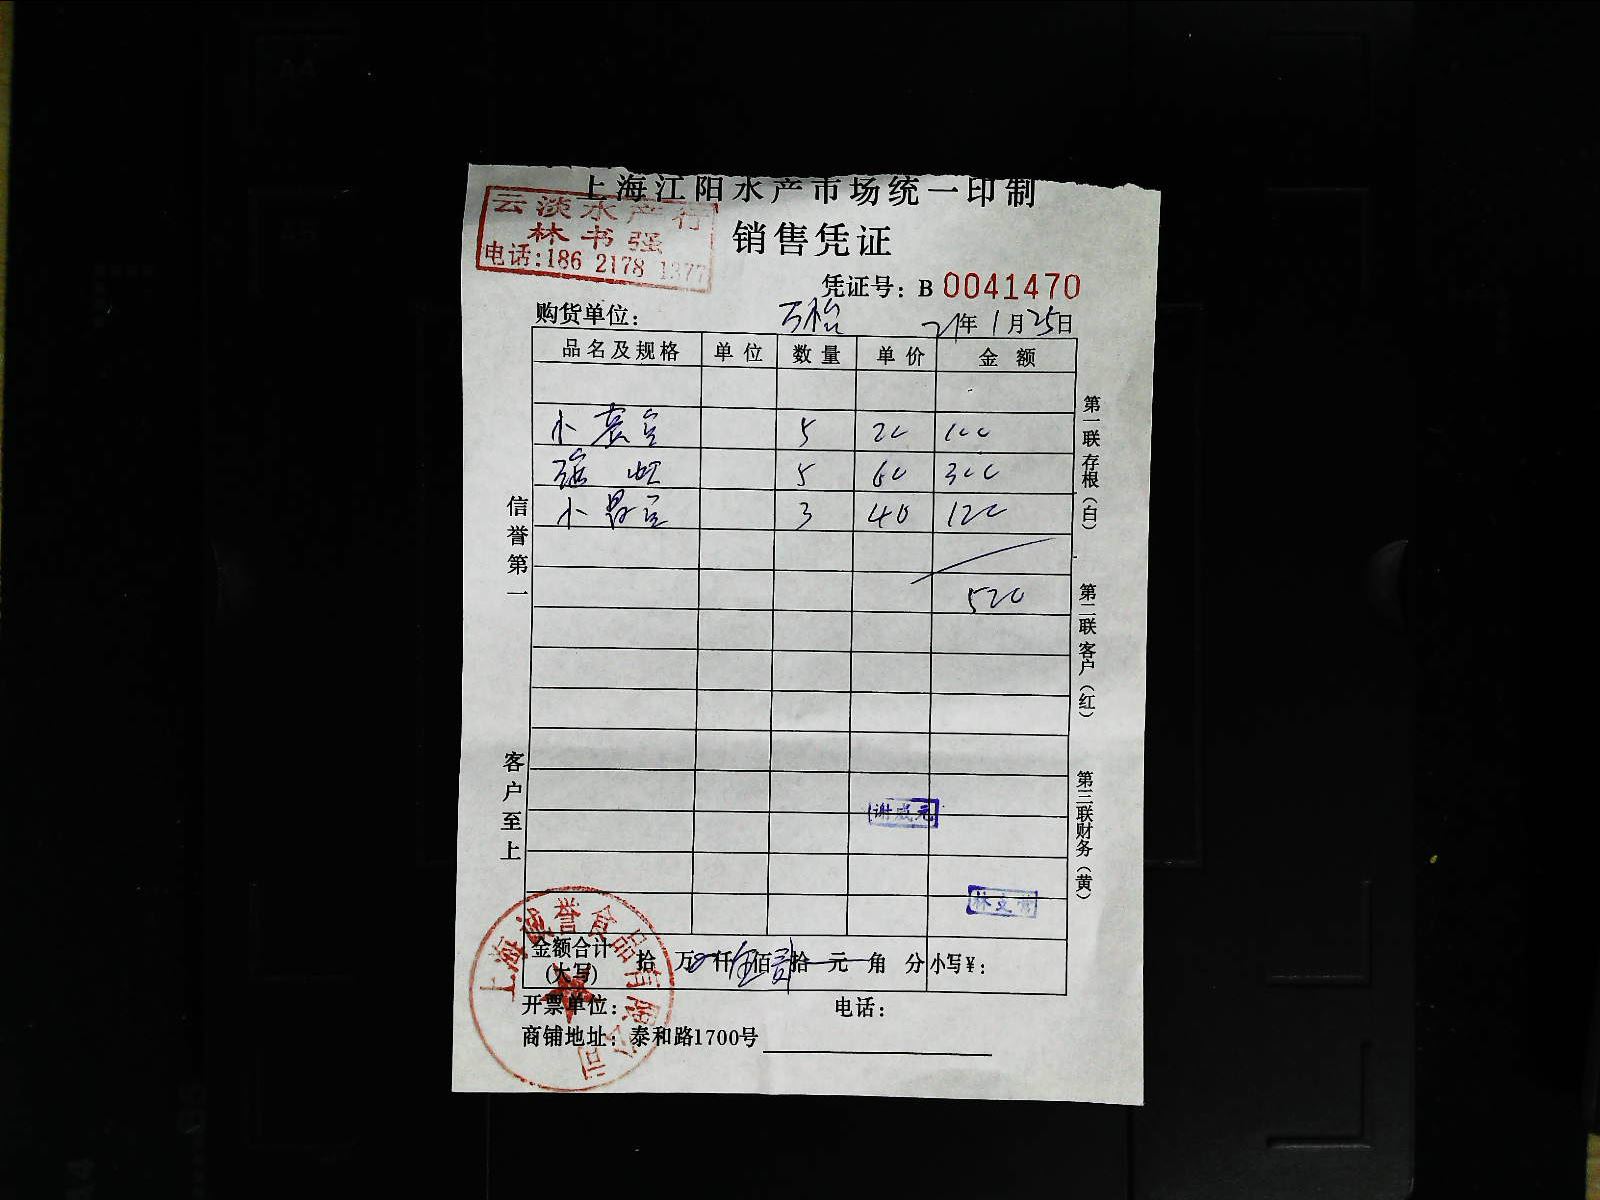 上海江阳水产市场统一印制
云淡水产行
林书强
电话:186 2178 1377
销售凭证
凭证号: B 0041470
购货单位: 万怡 21年1月25日
品名及规格 单位 数量 单价 金额
小 5 20 100
5 60 300
小 3 40 120
520
信誉第一
客户至上
第一联存根(白)
第二联客户(红)
第三联财务(黄)
谢成元
林文
上海诚誉食品有限公司
金额合计(大写) 拾 万 仟 伍 佰 贰 拾 元 角 分 小写¥:
开票单位: 电话:
商铺地址: 泰和路1700号